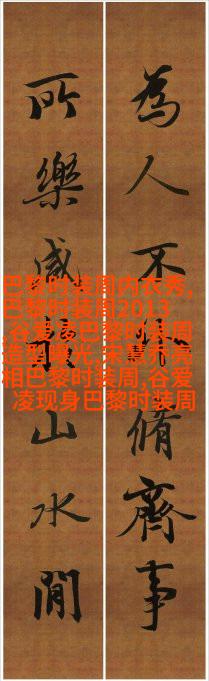 為人不脩齊事
所樂咸山水間
巴黎时装周内衣秀,
巴黎时装周2013
,谷爱凌巴黎时装周
造型曝光,宋慧乔亮
相巴黎时装周,谷爱
凌现身巴黎时装周